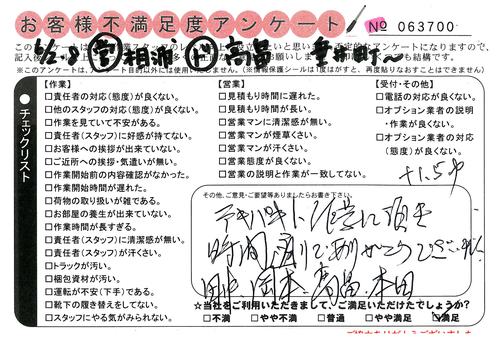 お客様不満足度アンケート
№ 063700
6/28 営 相浦 ド 高畠
※このアンケートは、アンケート目的以外には使用いたしません。(※情報保護シールは1度はがすと、再度貼りなおすことはできません)
チェックリスト
【作業】
□責任者の対応(態度)が良くない。
□他のスタッフの対応(態度)が良くない。
□作業を見ていて不安がある。
□責任者(スタッフ)に好感が持てない。
□お客様への挨拶が出来ていない。
□ご近所への挨拶・気遣いが無い。
□作業開始前の内容確認がなかった。
□作業開始時間が遅れた。
□荷物の取り扱いが雑である。
□お部屋の養生が出来ていない。
□作業時間が長すぎる。
□責任者(スタッフ)に清潔感が無い。
□責任者(スタッフ)が汗くさい。
□トラックが汚い。
□梱包資材が汚い。
□運転が不安(下手)である。
□靴下の履き替えをしてない。
□スタッフにやる気がみられない。
【営業】
□見積もり時間に遅れた。
□見積もり時間が長い。
□営業マンに清潔感が無い。
□営業マンが煙草くさい。
□営業マンが汗くさい。
□営業態度が良くない。
□営業の説明と作業が一致してない。
【受付・その他】
□電話の対応が良くない。
□オプション業者の説明
・作業が良くない。
□オプション業者の対応
(態度)が良くない。
その他、ご意見・ご要望等ありましたらお書き下さい。
テキパキと作業して頂き
時間通りでありがとうございました
岡本 高畠 本田
☆当社をご利用いただきまして、ご満足いただけたでしょうか?
□不満 □やや不満 □普通 □やや満足 □満足